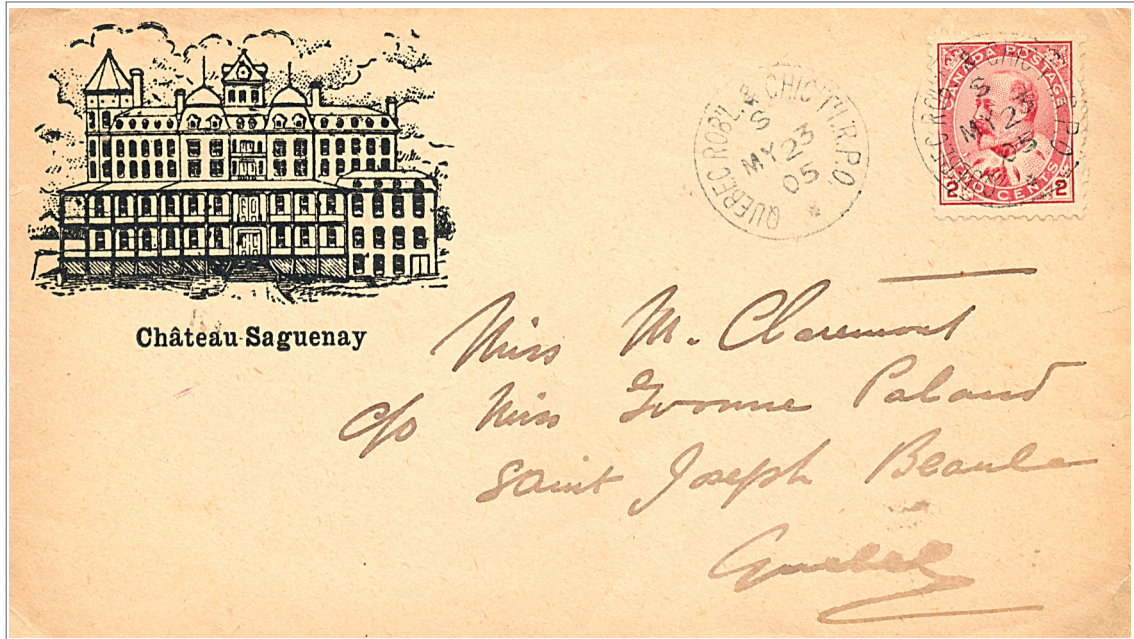 Château Saguenay
QUEBEC ROB'L. & CHIC'TI. R.P.O.
S
MY 23
05
CANADA POSTAGE
2 TWO CENTS 2
Miss M. Claremont
c/o Miss Yvonne Paland
Saint Joseph Beauce
Quebec